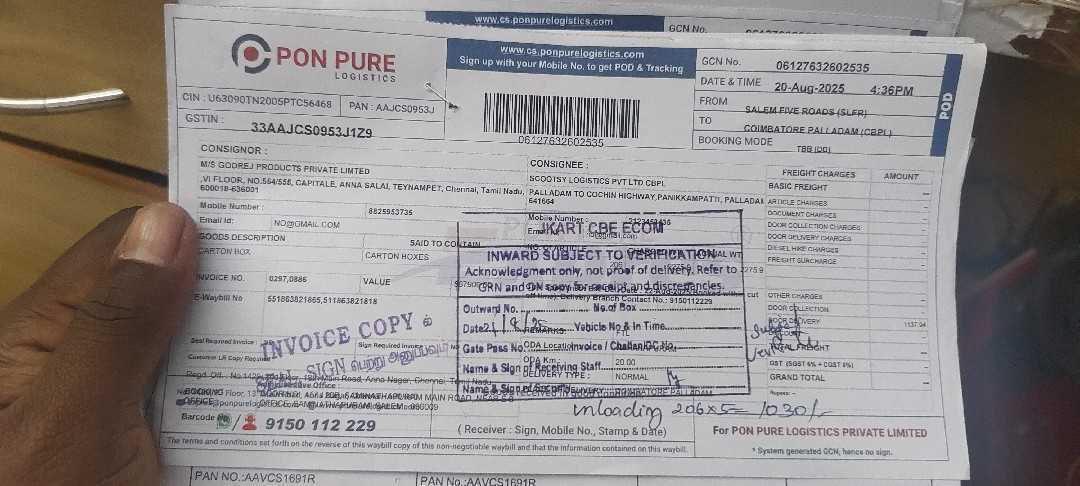 www.cs.ponpurelogistics.com
GCN No.
PON PURE
LOGISTICS
www.cs.ponpurelogistics.com
Sign up with your Mobile No. to get POD & Tracking
GCN No. 06127632602535
DATE & TIME 20-Aug-2025 4:36PM
FROM SALEM FIVE ROADS (SLFR)
TO COIMBATORE PALLADAM (CBPL)
BOOKING MODE TBB (DD)
POD
CIN : U63090TN2005PTC56468 PAN : AAJCS0953J
GSTIN : 33AAJCS0953J1Z9
06127632602535
CONSIGNOR :
M/S GODREJ PRODUCTS PRIVATE LIMTED
,VI FLOOR, NO.564/558, CAPITALE, ANNA SALAI, TEYNAMPET, Chennai, Tamil Nadu,
600018-636001
Mobile Number : 8825953735
Email Id: NO@GMAIL.COM
CONSIGNEE :
SCOOTSY LOGISTICS PVT LTD CBPL
PALLADAM TO COCHIN HIGHWAY,PANIKKAMPATTI, PALLADAM
641664
Mobile Number :
GOODS DESCRIPTION SAID TO CONTAIN
CARTON BOX CARTON BOXES
INVOICE NO. 0297,0886 VALUE
E-Waybill No 551863821865,511863821818
FREIGHT CHARGES AMOUNT
BASIC FREIGHT
ARTICLE CHARGES
DOCUMENT CHARGES
DOOR COLLECTION CHARGES
DOOR DELIVERY CHARGES
DIESEL HIKE CHARGES
FREIGHT SURCHARGE
OTHER CHARGES
DOOR COLLECTION
DOOR DELIVERY 1137.94
TOTAL FREIGHT
GST (SGST 6% + CGST 6%)
GRAND TOTAL
Rupees: --
IKART CBE ECOM
INWARD SUBJECT TO VERIFICATION
Acknowledgment only, not proof of delivery. Refer to
GRN and DN copy for receipt and discrepancies.
Delivery Branch Contact No.: 9150112229
Outward No. No. of Box
Date Vehicle No & In Time
REMARKS: FTL
Gate Pass No. Invoice / Challan/DC No.
ODA Location
ODA Km.: 20.00
Name & Sign of Receiving Staff
DELIVERY TYPE : NORMAL
Name & Sign of Security
INVOICE COPY ல்
SEAL, SIGN பெற்று அனுப்பவும்
Seal Required Invoice :
Sign Required Invoice
Customer LR Copy Required
subject
unloading 206x5= 1030/-
BOOKING
OFFICE
Barcode
9150 112 229
( Receiver : Sign, Mobile No., Stamp & Date)
For PON PURE LOGISTICS PRIVATE LIMITED
* System generated GCN, hence no sign.
The terms and conditions set forth on the reverse of this waybill copy of this non-negotiable waybill and that the information contained on this waybill.
PAN NO.:AAVCS1691R
PAN NO.:AAVCS1691R